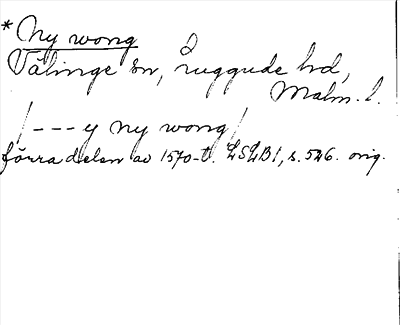 * Ny wong
Välinge sn, Luggude hd,
Malm. l.
/ --- y Ny wong /
förra delen av 1570-t. LSLB1, s. 526. orig.